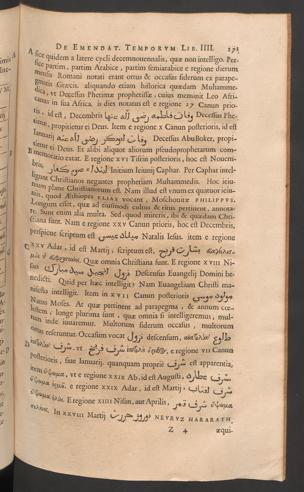 DE EMENDAT. TEMPORVM LIB. IIII. 191
sice quidem a latere cycli decemnouennalis, quæ non intelligo. Per-
sice partim, partim Arabice, partim semiarabice e regione dierum
mensis Romani notari erant ortus & occasus siderum ex parape-
gmatis Græcis. aliquando etiam historica quædam Muhamme-
dica, vt Decessus Phetimæ prophetissæ, cuius meminit Leo Afri-
canus in sua Africa. is dies notatus est e regione 17 Canun prio-
ris, id est, Decembris وفات فاطمه رضي الله عنها Decessus Phe-
timæ, propitietur ei Deus. Item e regione x Canun posterioris, id est
Ianuarij وفات ابوبكر رضي الله عنه Decessus AbuBoker, propi-
tietur ei Deus. Et alibi aliquot aliorum pseudopropheratum com-
B memoratio extat. E regione XVI Tisrin posterioris, hoc est Nouem-
bris, ابتداء صوم كفار Initium Ieiunij Caphar. Per Caphar intel-
ligunt Christianos negantes prophetiam Muhammedis. Hoc ieiu-
nium plane Christianorum est. Nam illud est vnum ex quatuor ieiu-
niis, quod Æthiopes ELIAE vocant, Moschouitæ PHILIPPVS.
Longum esset, quæ ad eiusmodi cultus & ritus pertinent, annota-
re. Sunt enim alia multa. Sed quod mireris, ibi & quædam Chri-
stiana sunt. Nam e regione XXV Canun prioris, hoc est Decembris,
perspicue scriptum est ميلاد عيسى Natalis Iesus. item e regione
C XXV Adar, id est Martij, scriptum est,
Quæ omnia Christiana sunt. E regione XVIII Ni-
san Descensus Euangelij Domini be-
nedicti. Quid per hæc intelligit? Nam Euangelium Christi ma-
nifesta intelligit. Item in XVII Canun posterioris مولود موسى
Natus Moses. At quæ pertinent ad parapegma, & annum cæ-
lestem, longe plurima sunt, quæ omnia si intelligeremus, mul-
tum inde iuuaremur. Multorum siderum occasus, multorum
ortus referuntur. Occasum vocat نزول descensum,
e regione VII Canun
posterioris, siue Ianuarij. quanquam proprie شرف est apparentia,
vt e regione XXIX Ab, id est Augusti, شرف عطارد
e regione XXIX Adar, id est Martij,
E regione XIIII Nisan, aut Aprilis, شرف قمر
In XXVIII Martij NEVRVZ HARARATH,
Z 4 æqui-